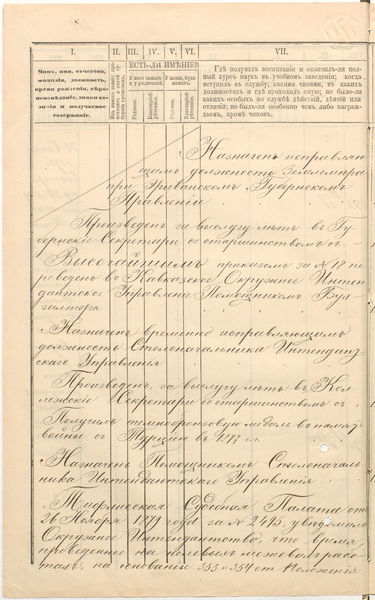 I.
II.
III.
IV.
V.
VI.
VII.
ЕСТЬ-ЛИ ИМѢНІЕ
Чинъ, имя, отчество,
фамилія, должность,
лѣта рожденія, вѣро-
исповѣданіе, знаки от-
личія и получаемое
содержаніе.
У него самого
и у родителей.
У жены, буде
женатъ.
Родовое.
Благопріоб-
рѣтенное.
Родовое.
Благопріоб-
рѣтенное.
Гдѣ получилъ воспитаніе и окончилъ-ли пол-
ный курсъ наукъ въ учебномъ заведеніи; когда
вступилъ въ службу; какими чинами, въ какихъ
должностяхъ и гдѣ проходилъ оную; не было-ли
какихъ особыхъ по службѣ дѣяній, или
отличій; не былъ-ли особенно чѣмъ либо награж-
даемъ, кромѣ чиновъ.
Назначенъ исправляю-
щимъ должность Землемѣра
при Эриванскомъ Губернскомъ
Правленіи
Произведенъ за выслугу лѣтъ въ Гу-
бернскіе Секретари со старшинствомъ съ
Высочайшимъ приказомъ за № 78 пе-
реведенъ въ Кавказское Окружное Интен-
дантское Управленіе Помощникомъ Бух-
галтера
Назначенъ временно исправляющимъ
должность Столоначальника Интендант-
скаго Управленія
Произведенъ, за выслугу лѣтъ въ Кол-
лежскіе Секретари со старшинствомъ съ
Получилъ темнобронзовую медаль въ память
войны съ Турціею въ 1877 г.
Назначенъ Помощникомъ Столоначаль-
ника Интендантскаго Управленія
Тифлисская Судебная Палата отъ
26 Ноября 1879 года за № 2415, увѣдомила
Окружное Интендантство, что время
проведенное на полевыхъ межевыхъ рабо-
тахъ, на основаніи 353 и 354 ст. Положенія